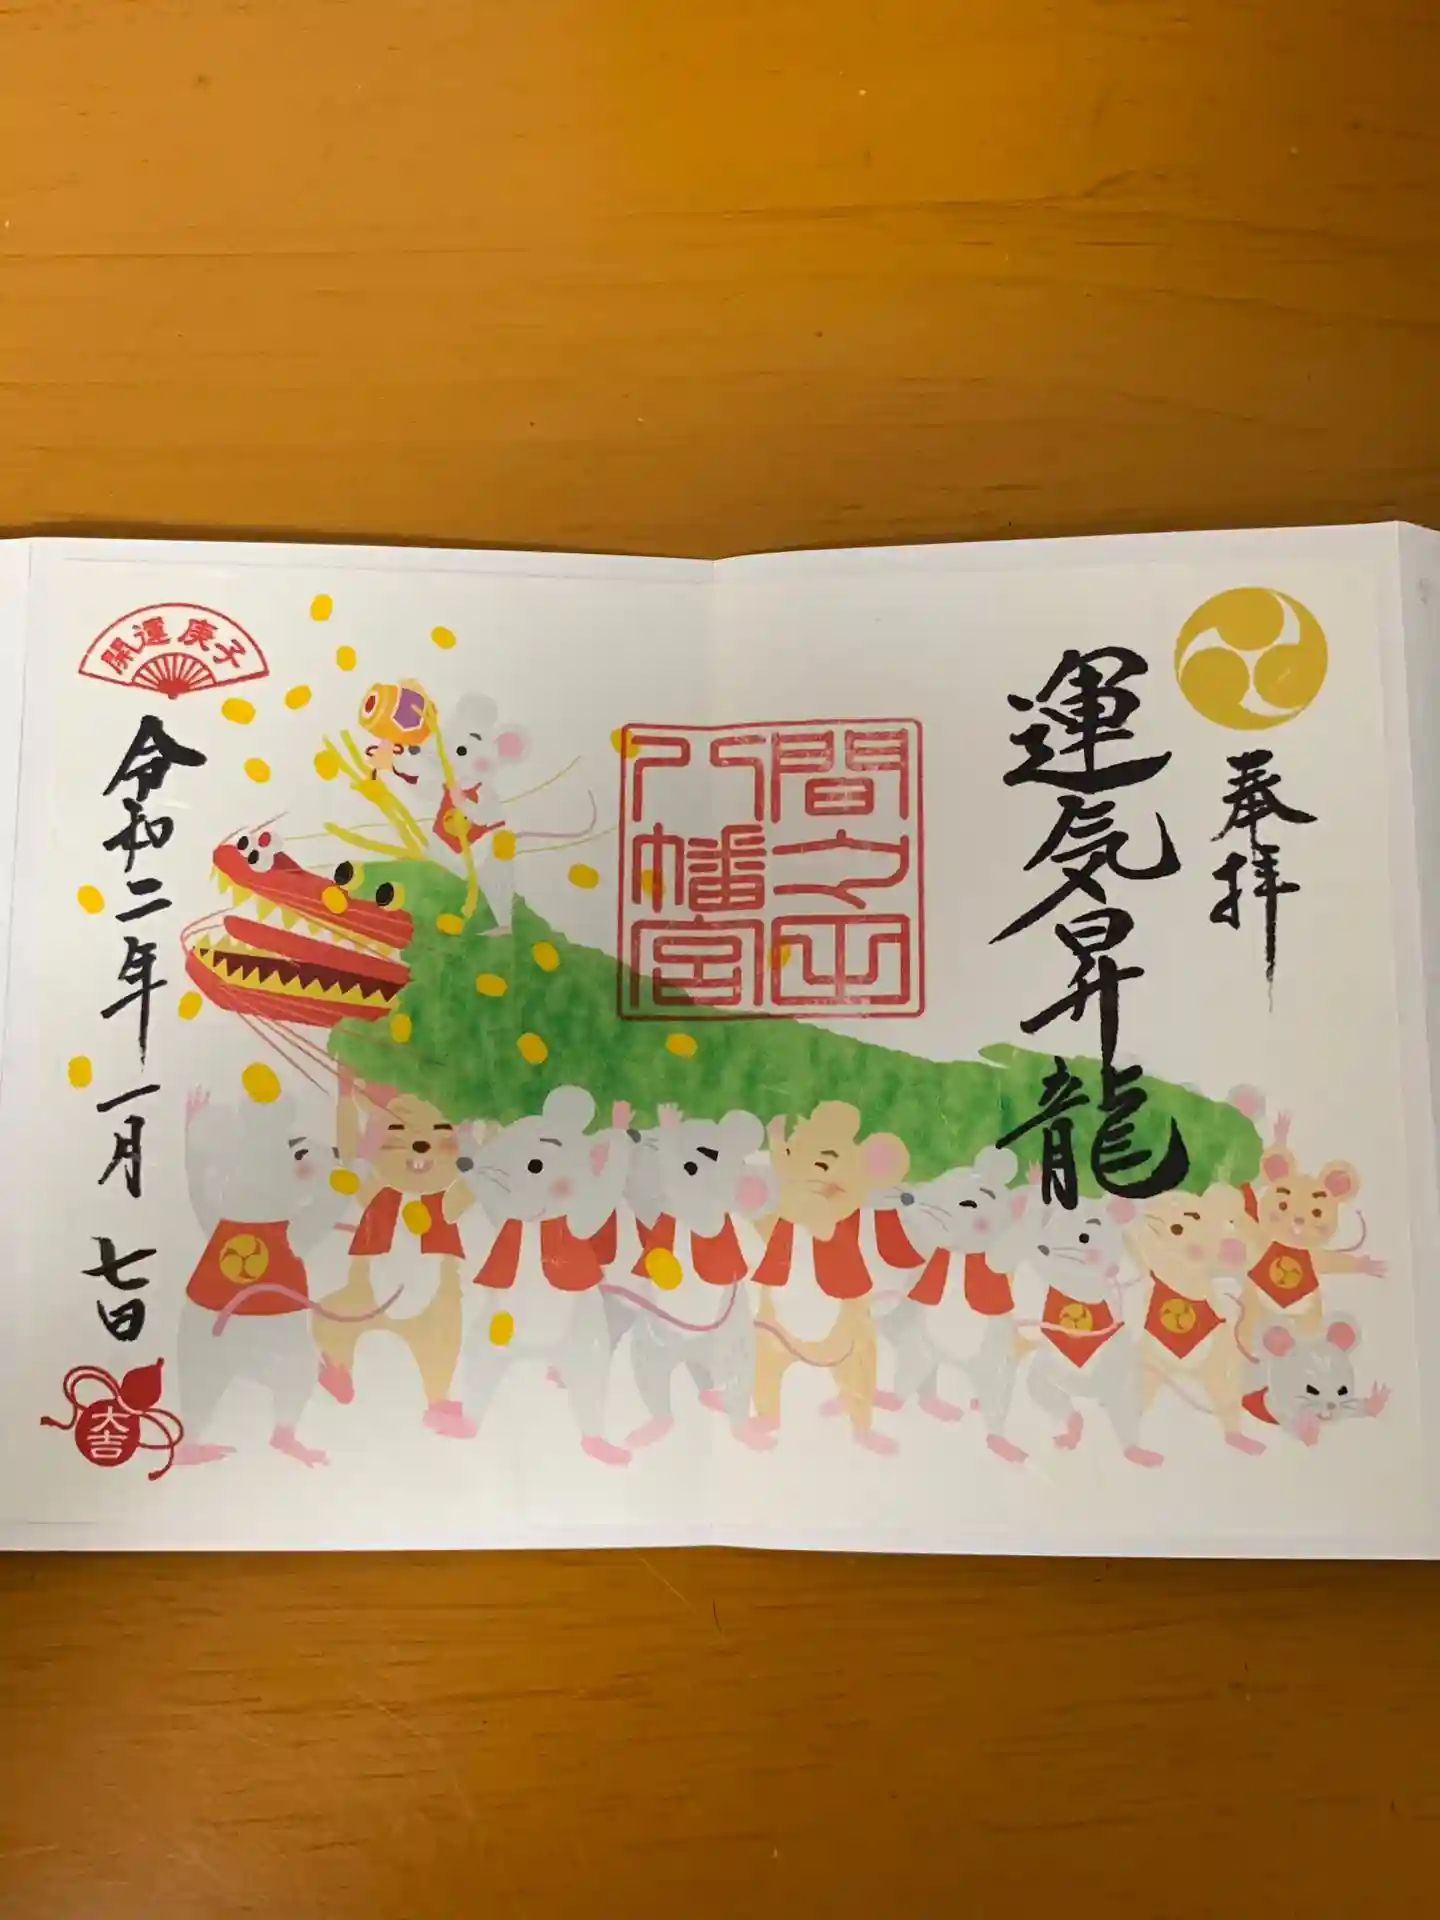 奉拝
運気昇龍
間々田
八幡宮
開運 庚子
令和二年一月七日
大吉